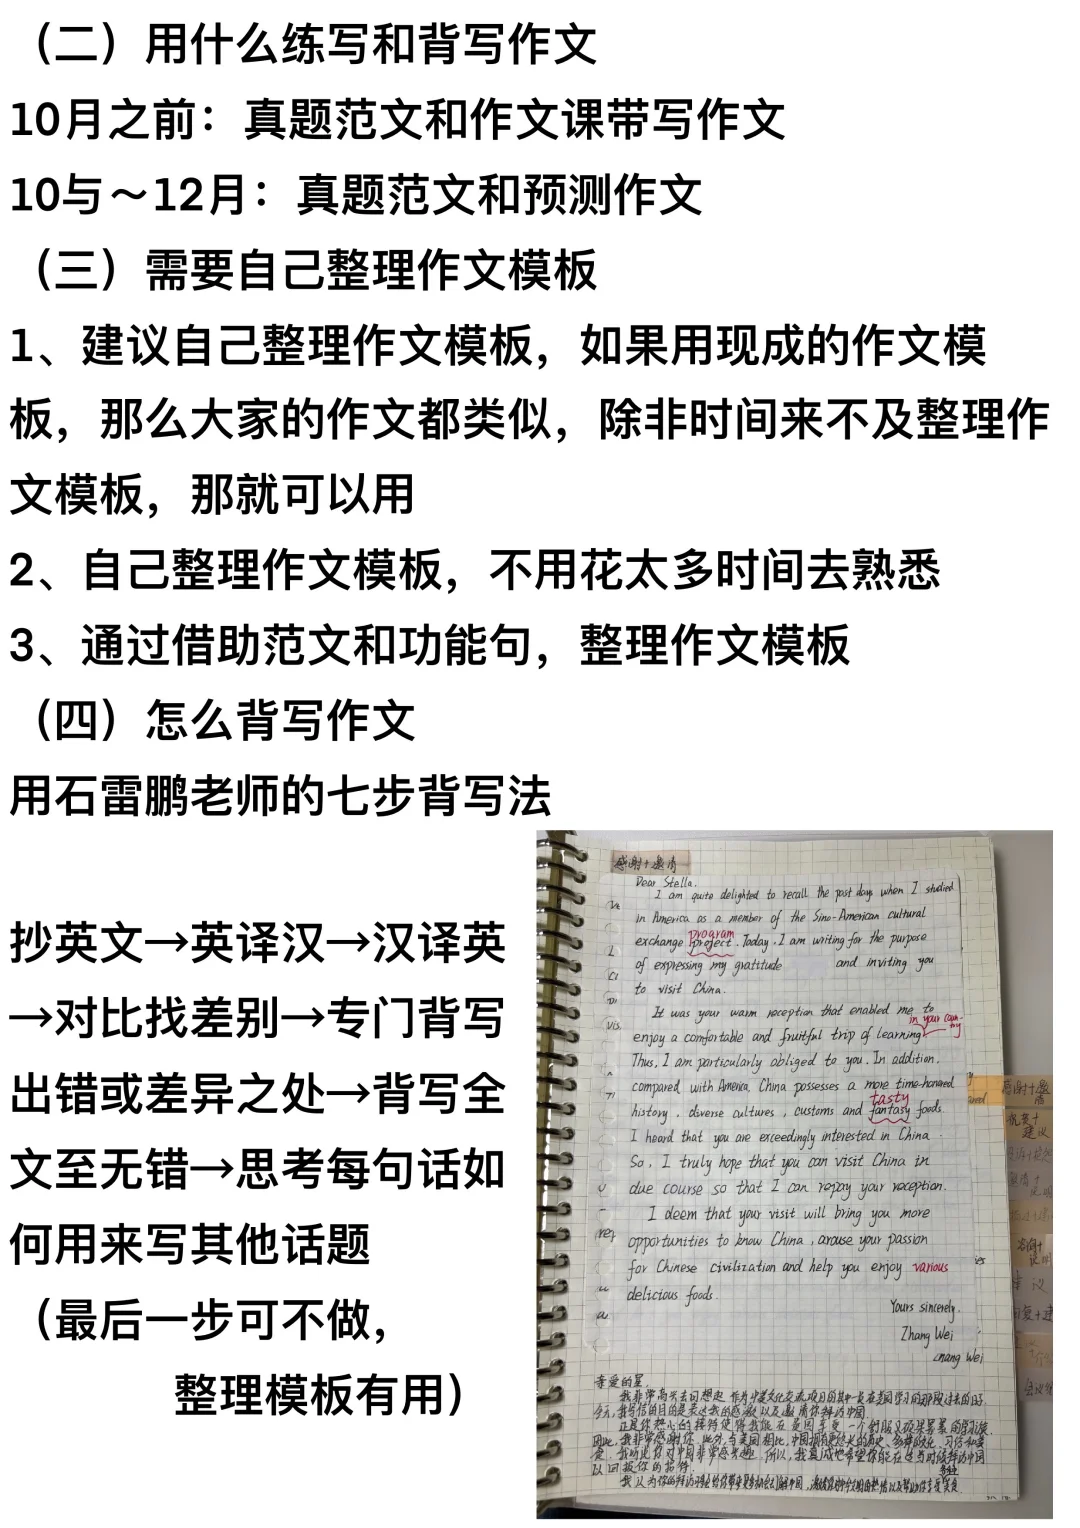 （二）用什么练写和背写作文
10月之前：真题范文和作文课带写作文
10与～12月：真题范文和预测作文
（三）需要自己整理作文模板
1、建议自己整理作文模板，如果用现成的作文模
板，那么大家的作文都类似，除非时间来不及整理作
文模板，那就可以用
2、自己整理作文模板，不用花太多时间去熟悉
3、通过借助范文和功能句，整理作文模板
（四）怎么背写作文
用石雷鹏老师的七步背写法
抄英文→英译汉→汉译英
→对比找差别→专门背写
出错或差异之处→背写全
文至无错→思考每句话如
何用来写其他话题
（最后一步可不做，
整理模板有用）
感谢+邀请
Dear Stella.
I am quite delighted to recall the past days when I studied
in America as a member of the Sino-American cultural
program
exchange project. Today, I am writing for the purpose
of expressing my gratitude and inviting you
to visit China.
It was your warm reception that enabled me to
in your country
enjoy a comfortable and fruitful trip of learning.
Thus, I am particularly obliged to you. In addition,
compared with America, China possesses a more time-honored
tasty
history, diverse cultures, customs and fantasy foods.
I heard that you are exceedingly interested in China.
So, I truly hope that you can visit China in
due course so that I can repay your reception.
I deem that your visit will bring you more
opportunities to know China, arouse your passion
for Chinese civilization and help you enjoy various
delicious foods.
Yours sincerely.
Zhang Wei
Zhang Wei
亲爱的星
今天，我写信的目的是表达我的感激以及邀请你拜访中国
以回报你的招待.
感谢+邀请
建议